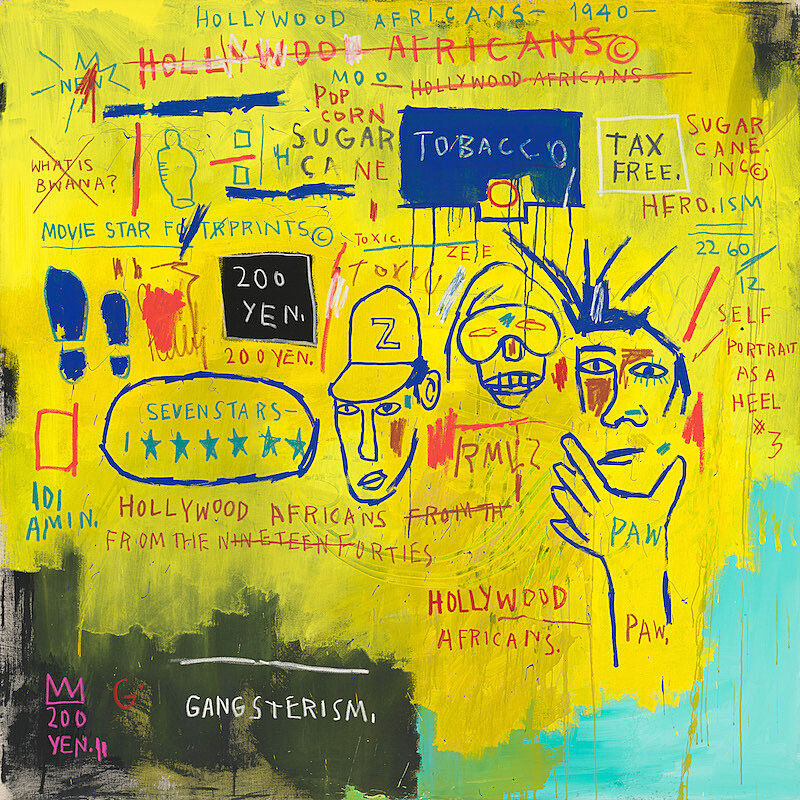 HOLLYWOOD AFRICANS- 1940-
HOLLYWOOD AFRICANS©
HOLLYWOOD AFRICANS
NEW
MOO
POP
CORN
SUGAR
CANE
TOBACCO
TAX
FREE.
SUGAR
CANE.
INC©
HERO.ISM
WHAT IS
BWANA?
MOVIE STAR FOOTRPRINTS©
TOXIC.
TOXIC
2260
12
200
YEN.
200 YEN.
Z
SELF
PORTRAIT
AS A
HEEL
#3
SEVEN STARS-
1
RMLZ
IDI
AMIN.
HOLLYWOOD AFRICANS FROM TH
FROM THE NINETEEN FORTIES
PAW
HOLLYWOOD
AFRICANS.
PAW.
G
GANGSTERISM.
200
YEN.